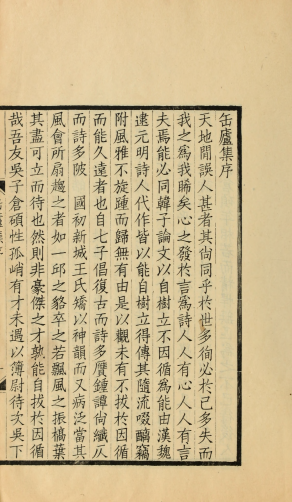 缶廬集序
天地間誤人甚者其尚同乎於世多徇必於己多失而
我之為我睎矣心之發於言為詩人人有心人人有言
夫焉能必同韓子論文以自樹立不因循為能由漢魏
逮元明詩人代作皆以能自樹立得傳其隨流啜醨竊
附風雅不旋踵而歸無有由是以觀未有不拔於因循
而能久遠者也自七子倡復古而詩多贋鍾譚尚纖仄
而詩多陂　國初新城王氏矯以神韻而又病泛當其
風會所扇趨之者如一邱之貉卒之若飄風之振槁葉
其盡可立而待也然則非豪傑之才孰能自拔於因循
哉吾友吳子倉碩性孤峭有才未遇以薄尉待次吳下